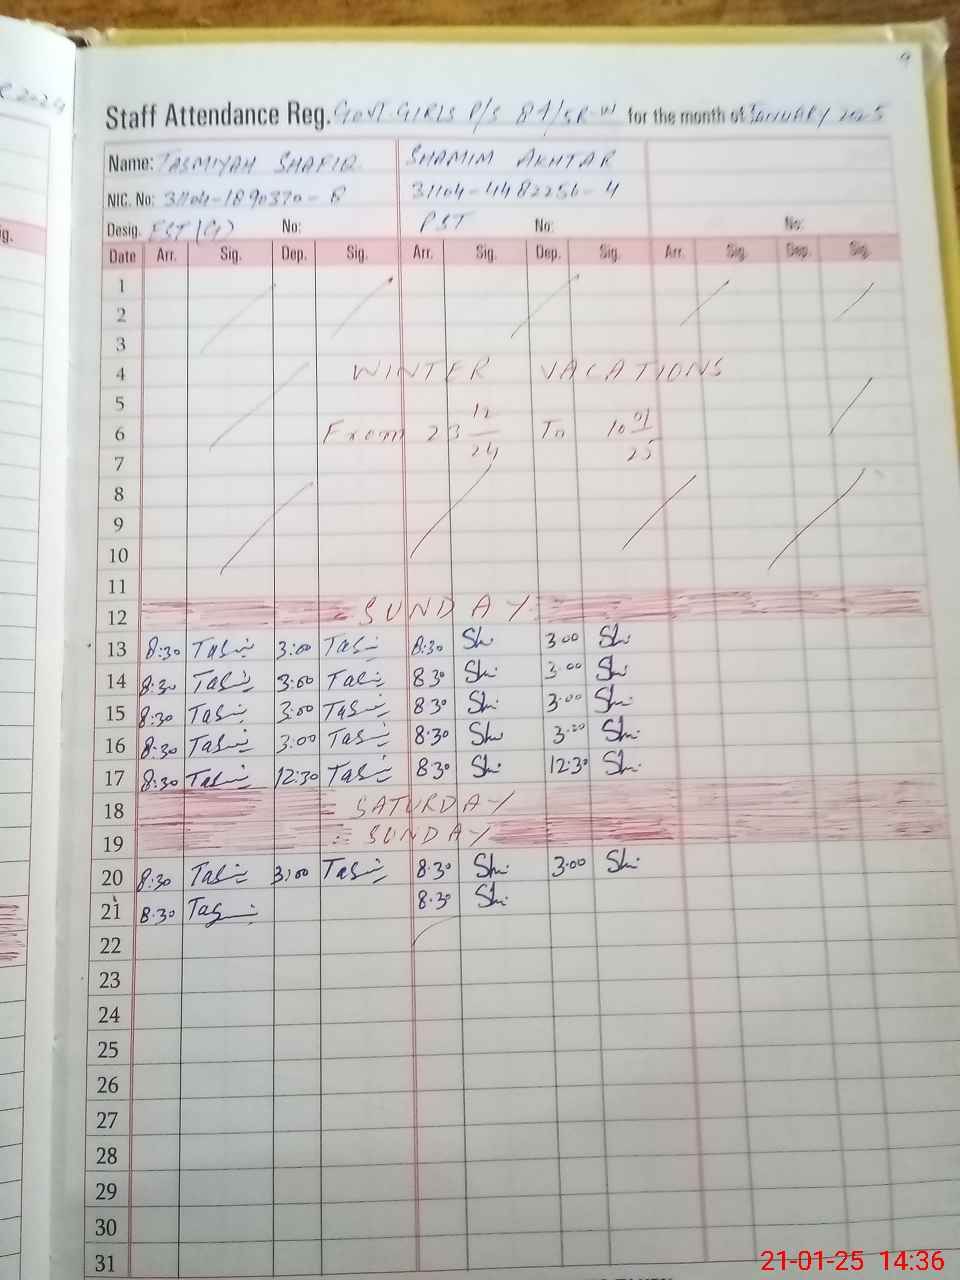 9
R 2024
Staff Attendance Reg. GOVT. GIRLS P/S 84/5R-W for the month of JANUARY 2025
Name: TASMIYAH SHAFIQ SHAMIM AKHTAR
NIC. No: 31104-1890370-8 31104-4482256-4
Desig. EST (G) No: PST No: No:
ig.
Date Arr. Sig. Dep. Sig. Arr. Sig. Dep. Sig. Arr. Sig. Dep. Sig.
1
2
3
4 WINTER VACATIONS
5
6 From 23 12/24 To 10 01/25
7
8
9
10
11
12 SUNDAY
13 8:30 3:00 8:30 Sh 3:00 Sh
14 8:30 3:00 8:30 Sh 3:00 Sh
15 8:30 3:00 8:30 Sh 3:00 Sh
16 8:30 3:00 8:30 Sh 3:00 Sh
17 8:30 12:30 8:30 Sh 12:30 Sh
18 SATURDAY
19 SUNDAY
20 8:30 3:00 8:30 Sh 3:00 Sh
21 8:30 8:30 Sh
22
23
24
25
26
27
28
29
30
31
21-01-25 14:36